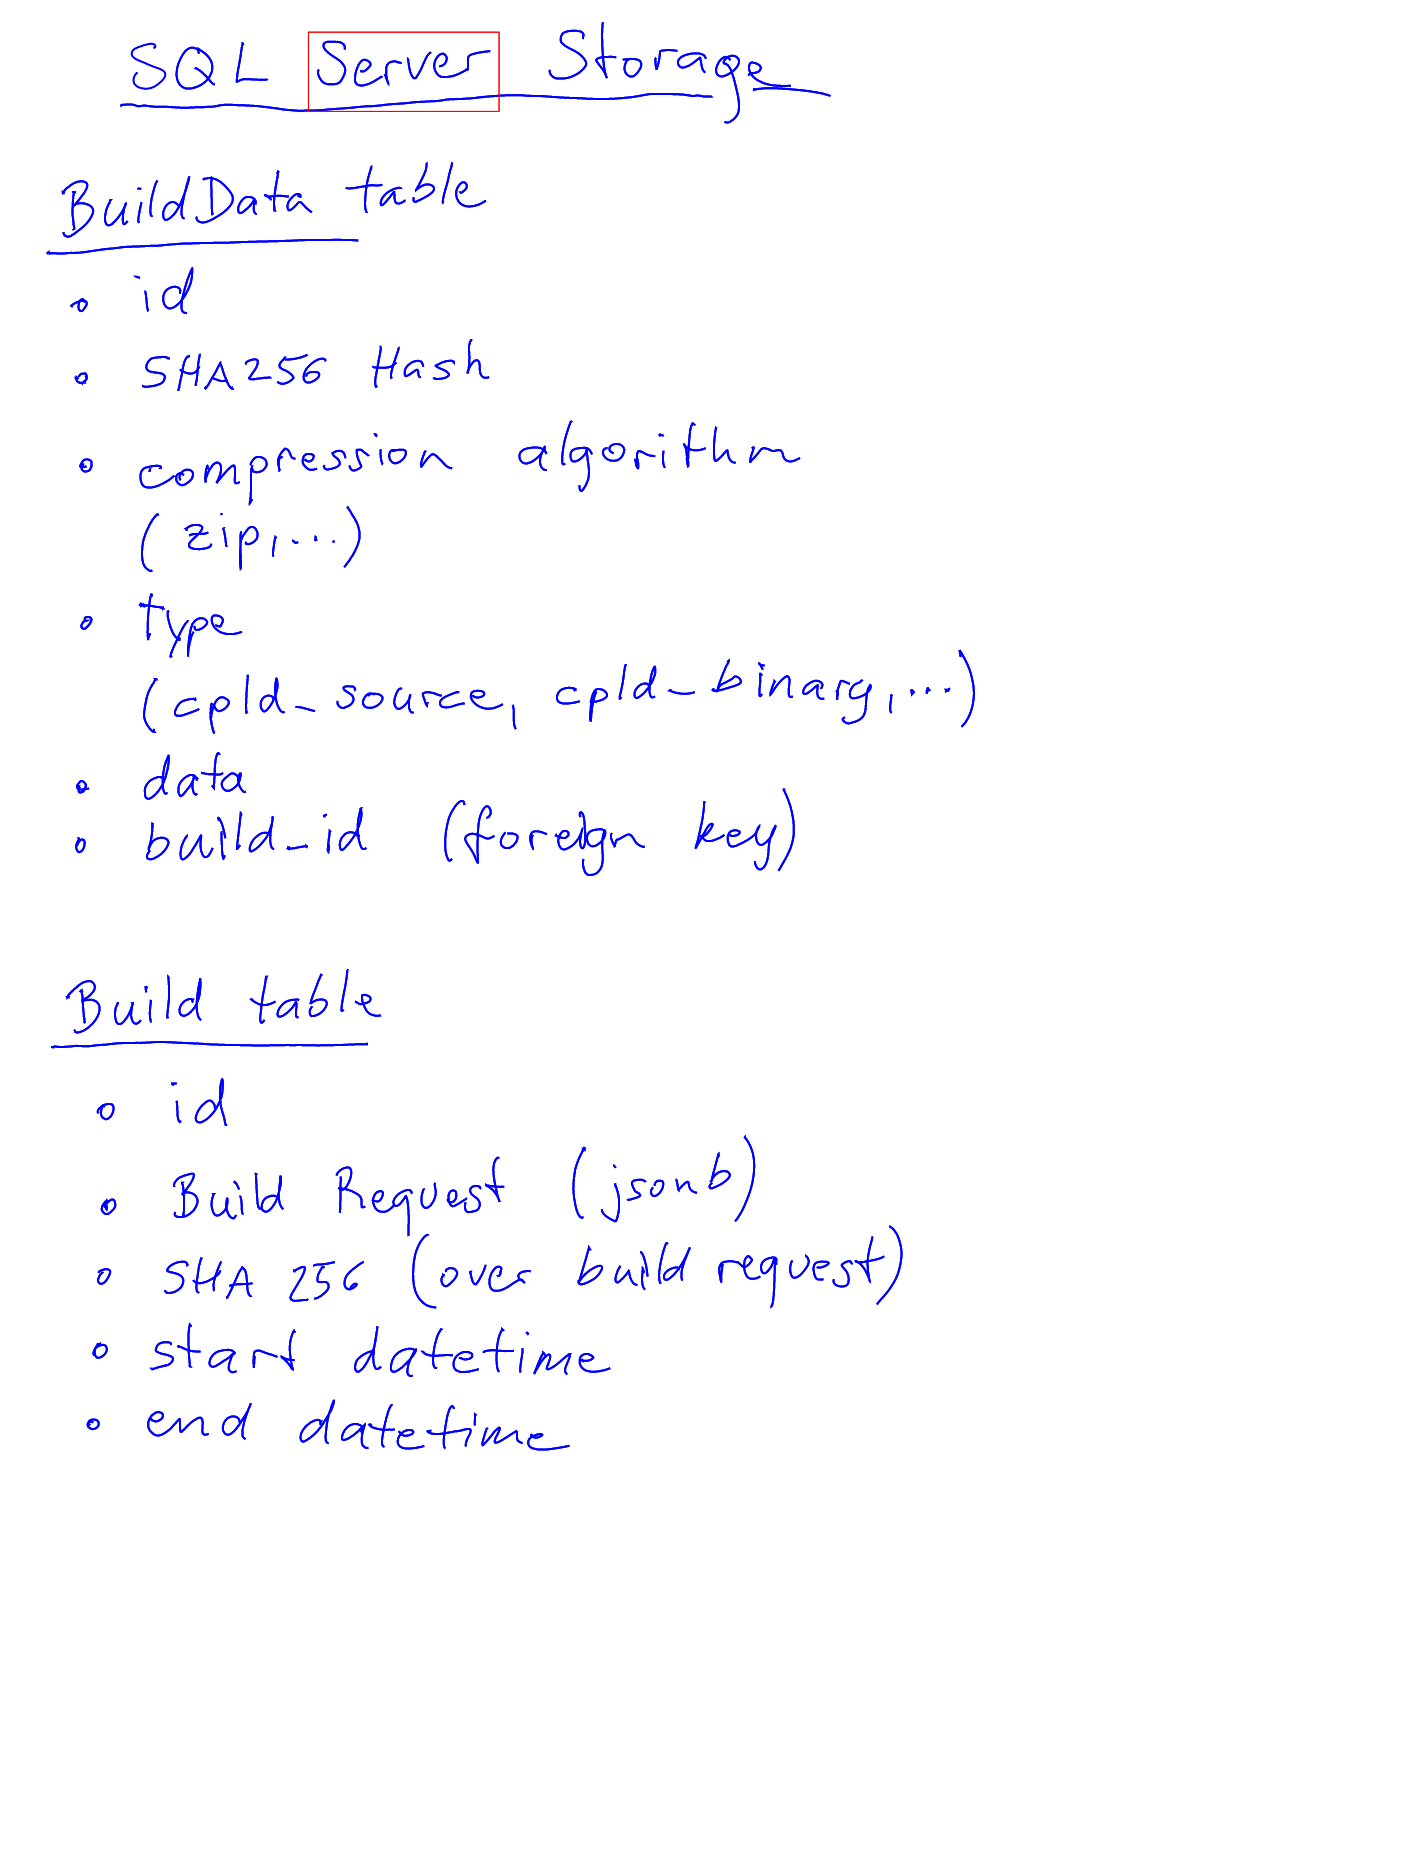 SQL Server Storage
BuildData table
• id
• SHA256 Hash
• compression algorithm
(zip, ...)
• type
(cpld_source, cpld_binary, ...)
• data
• build_id (foreign key)
Build table
• id
• Build Request (jsonb)
• SHA 256 (over build request)
• start datetime
• end datetime